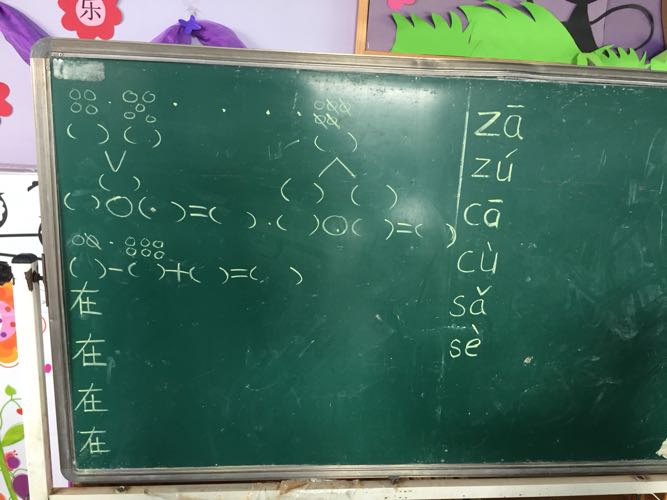 乐
( ) ( ) ( )
( ) ( ) ( )
( )○( )=( ) ( )○( )=( )
( )-( )+( )=( )
在
在
在
在
zā
zú
cā
cù
sǎ
sè